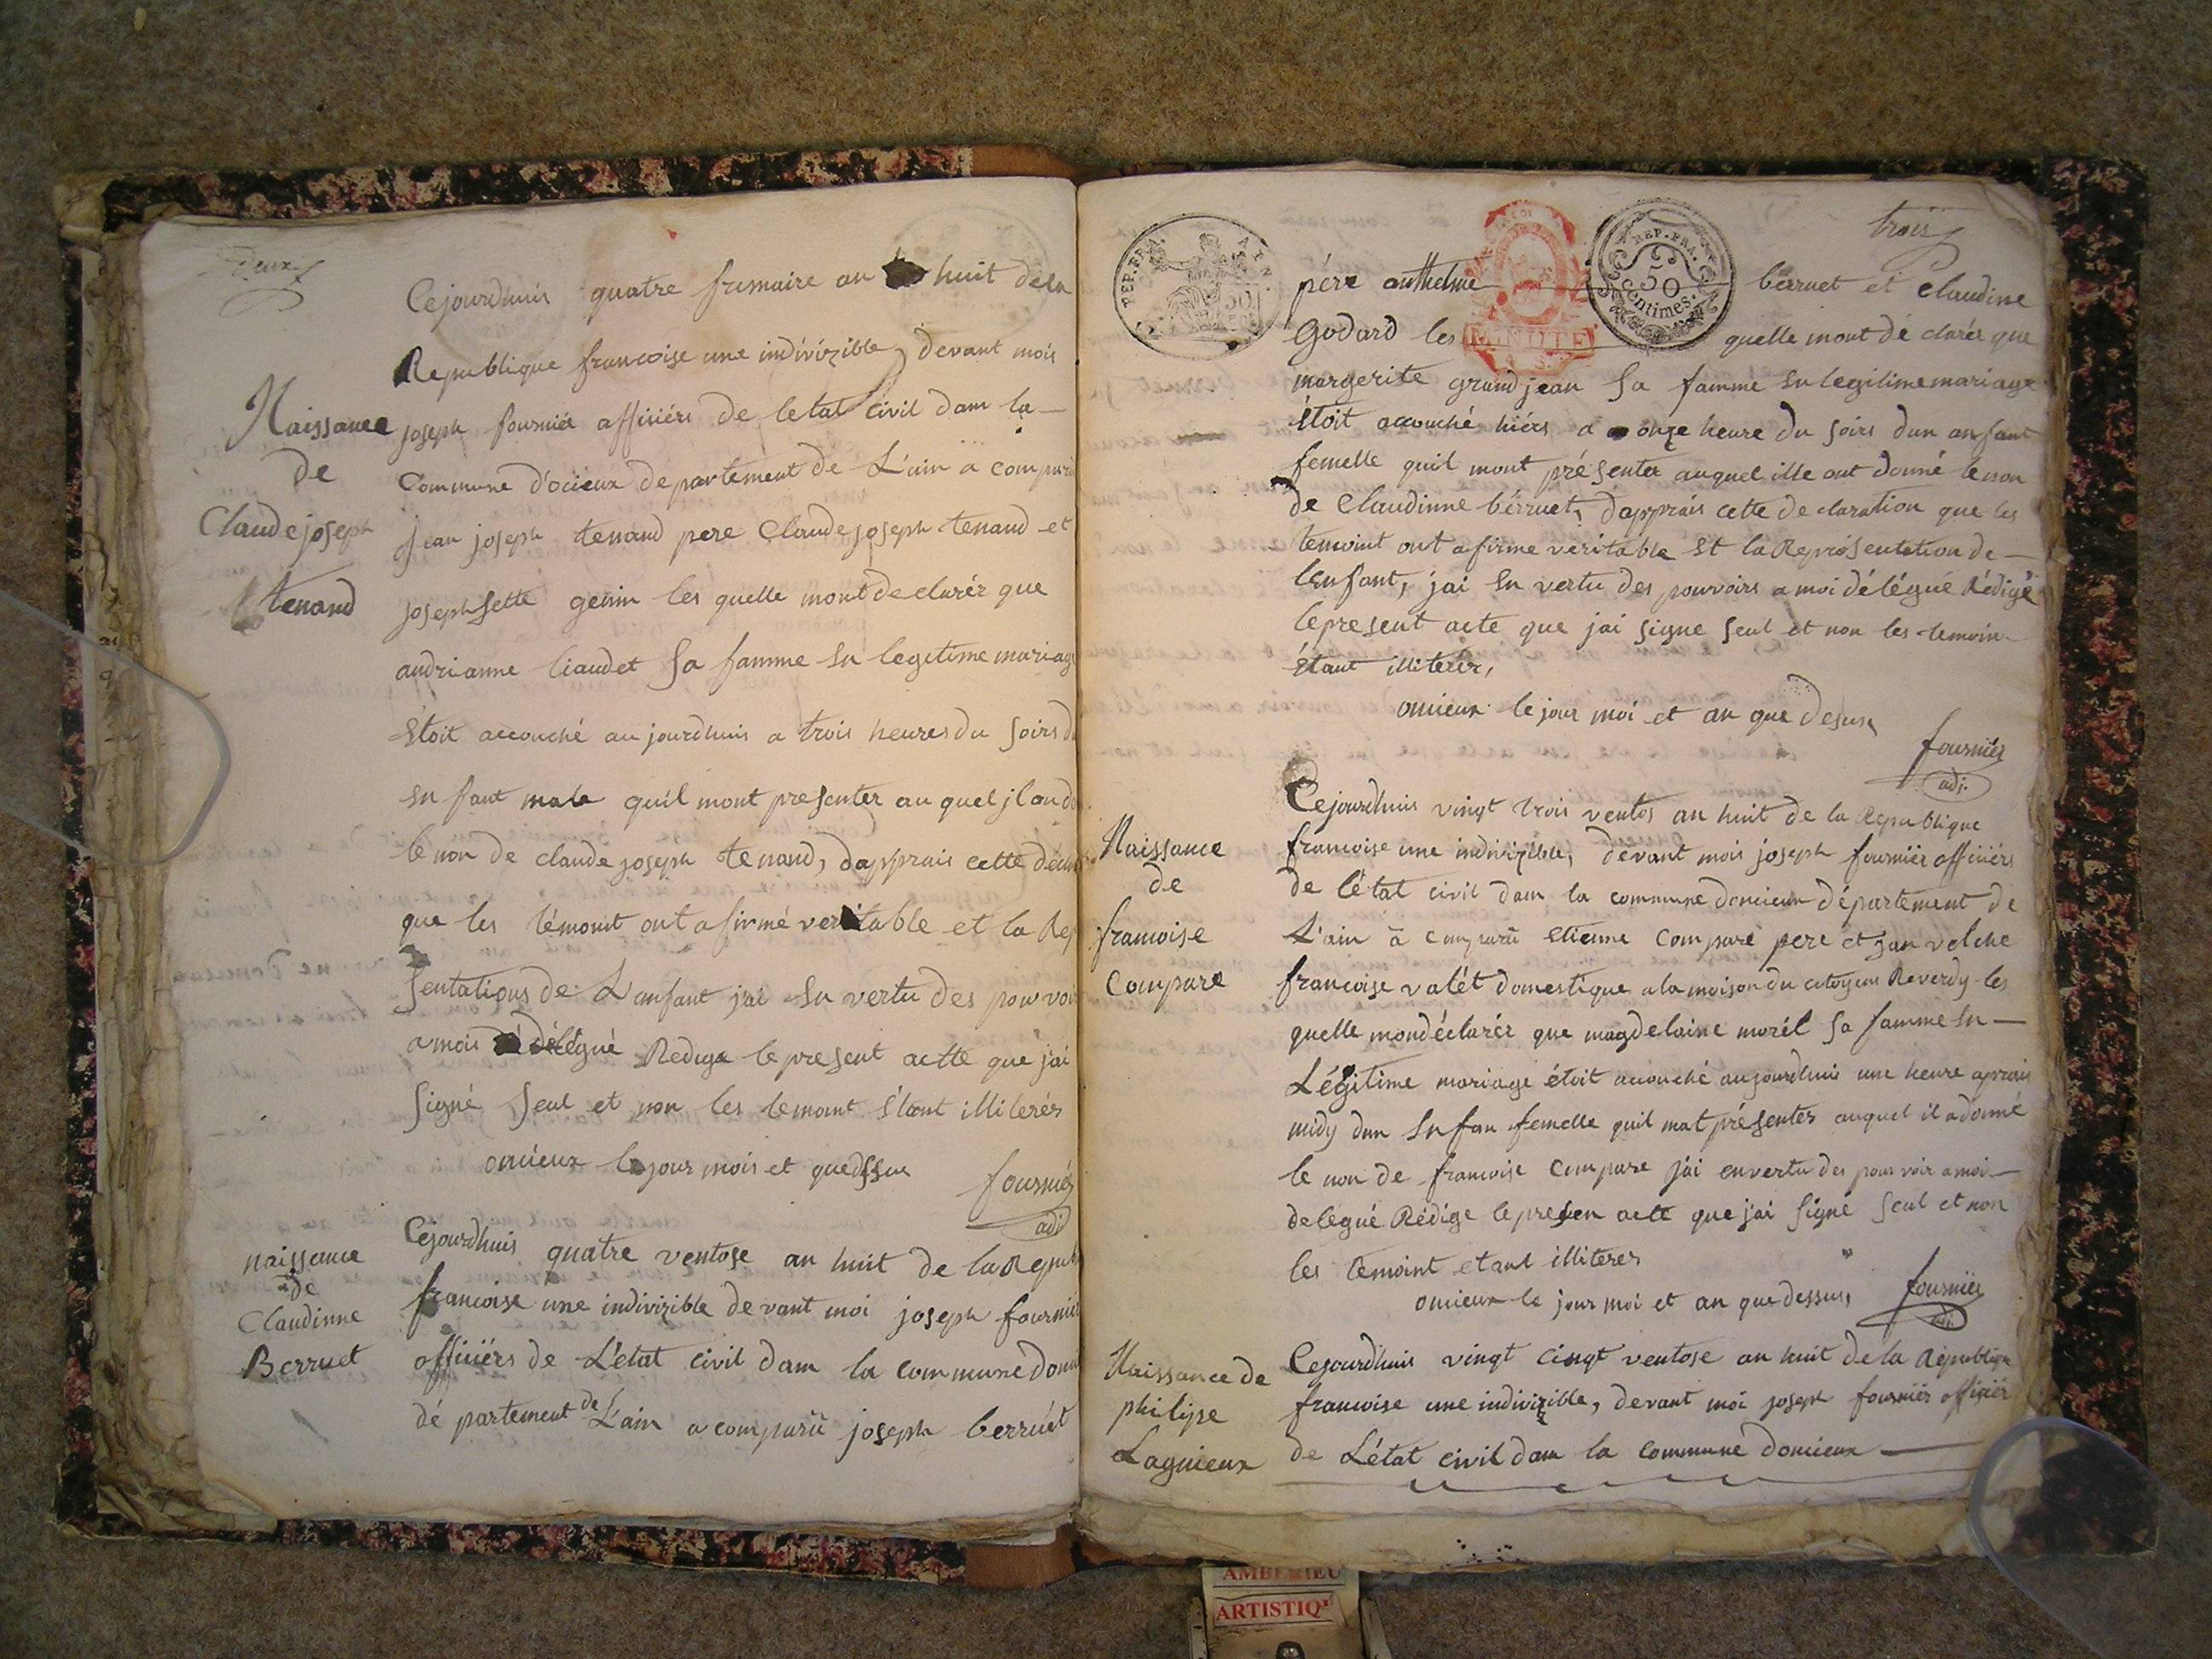 deux
Cejourdhuis quatre frimaire an huit dela
Republique francoise une indivizible, devant mois
Naissance
de
Claude joseph
tenand
joseph fourniér affiiiérs de letat civil dam la
Commune d'ocieux departement de L'ain a comparu
jean joseph tenand pere Claude joseph tenand et
josephsette genin les quelle mont declarér que
andrianne liaudet sa famme en legitime mariage
étoit accouché aujourdhuis a trois heures du soirs
en fant mala quil mont presenter au quel
le non de claude joseph tenand, dapprais cette
que les témoint ont afirmé veritable et la Rep
sentations de L'anfant jai en vertu des pouvoir
a mois délégué Redige le present actte que jai
Signé Seul et non les temoint étant illiterés
oncieux le jour mois et quedssu
fourniér
adj
naissance
de
Claudinne
Berruet
Cejourdhuis quatre ventose an huit de la Republ
francoise une indivizible devant moi joseph fourniér
officiiérs de L'état civil dam la commune
dé partement de L'ain a comparü joseph berruét
trois
REP. FRA.
50
REP. FRA.
50
centimes.
MINUTE
pére anthelme berruet et Claudine
Godard les quelle mont dé clarér que
margerite grand jean sa famme en legitime mariage
étoit accouché hiérs a onze heure du soirs dun anfant
femelle quil mont présenter auquel ille ont donné le non
de Claudinne bérruet, dapprais cette declaration que les
temoint ont afirme veritable et la Représentation de
lenfant, jai en vertu des pouvoirs a moi délégué Rédigé
le present acte que jai signe seul et non les temoin
étant illiterér,
oncieux le jour moi et an que desus,
fourniér
adj.
Naissance
de
francoise
Compare
Cejourdhuis vingt trois ventos an huit de la Republique
francoise une indivizible, devant mois joseph fourniér officiiérs
de l'état civil dam la commune doncieux département de
L'ain a comparü etienne compare pere et jan velche
francoise valét domestique a la maison du citoyen Reverdy les
quelle mondéclarér que magdelaine morél sa famme en
Légitime mariage étoit accouché aujourdhuis une heure aprais
midy dun enfan femelle quil mat présenter auquel il a donné
le non de francoise Compare jai en vertu des pouvoir a moi
delégué Rédige le presen acte que jai signé seul et non
les temoint etant illiteres
oncieux le jour moi et an que dessus,
fourniér
adj.
Naissance de
philipe
Lagnieux
Cejourdhuis vingt cinqt ventose an huit de la République
francoise une indivizible, devant moi joseph fourniér officiér
de L'état civil dam la commune doncieux
AMBERIEU
ARTISTIQ